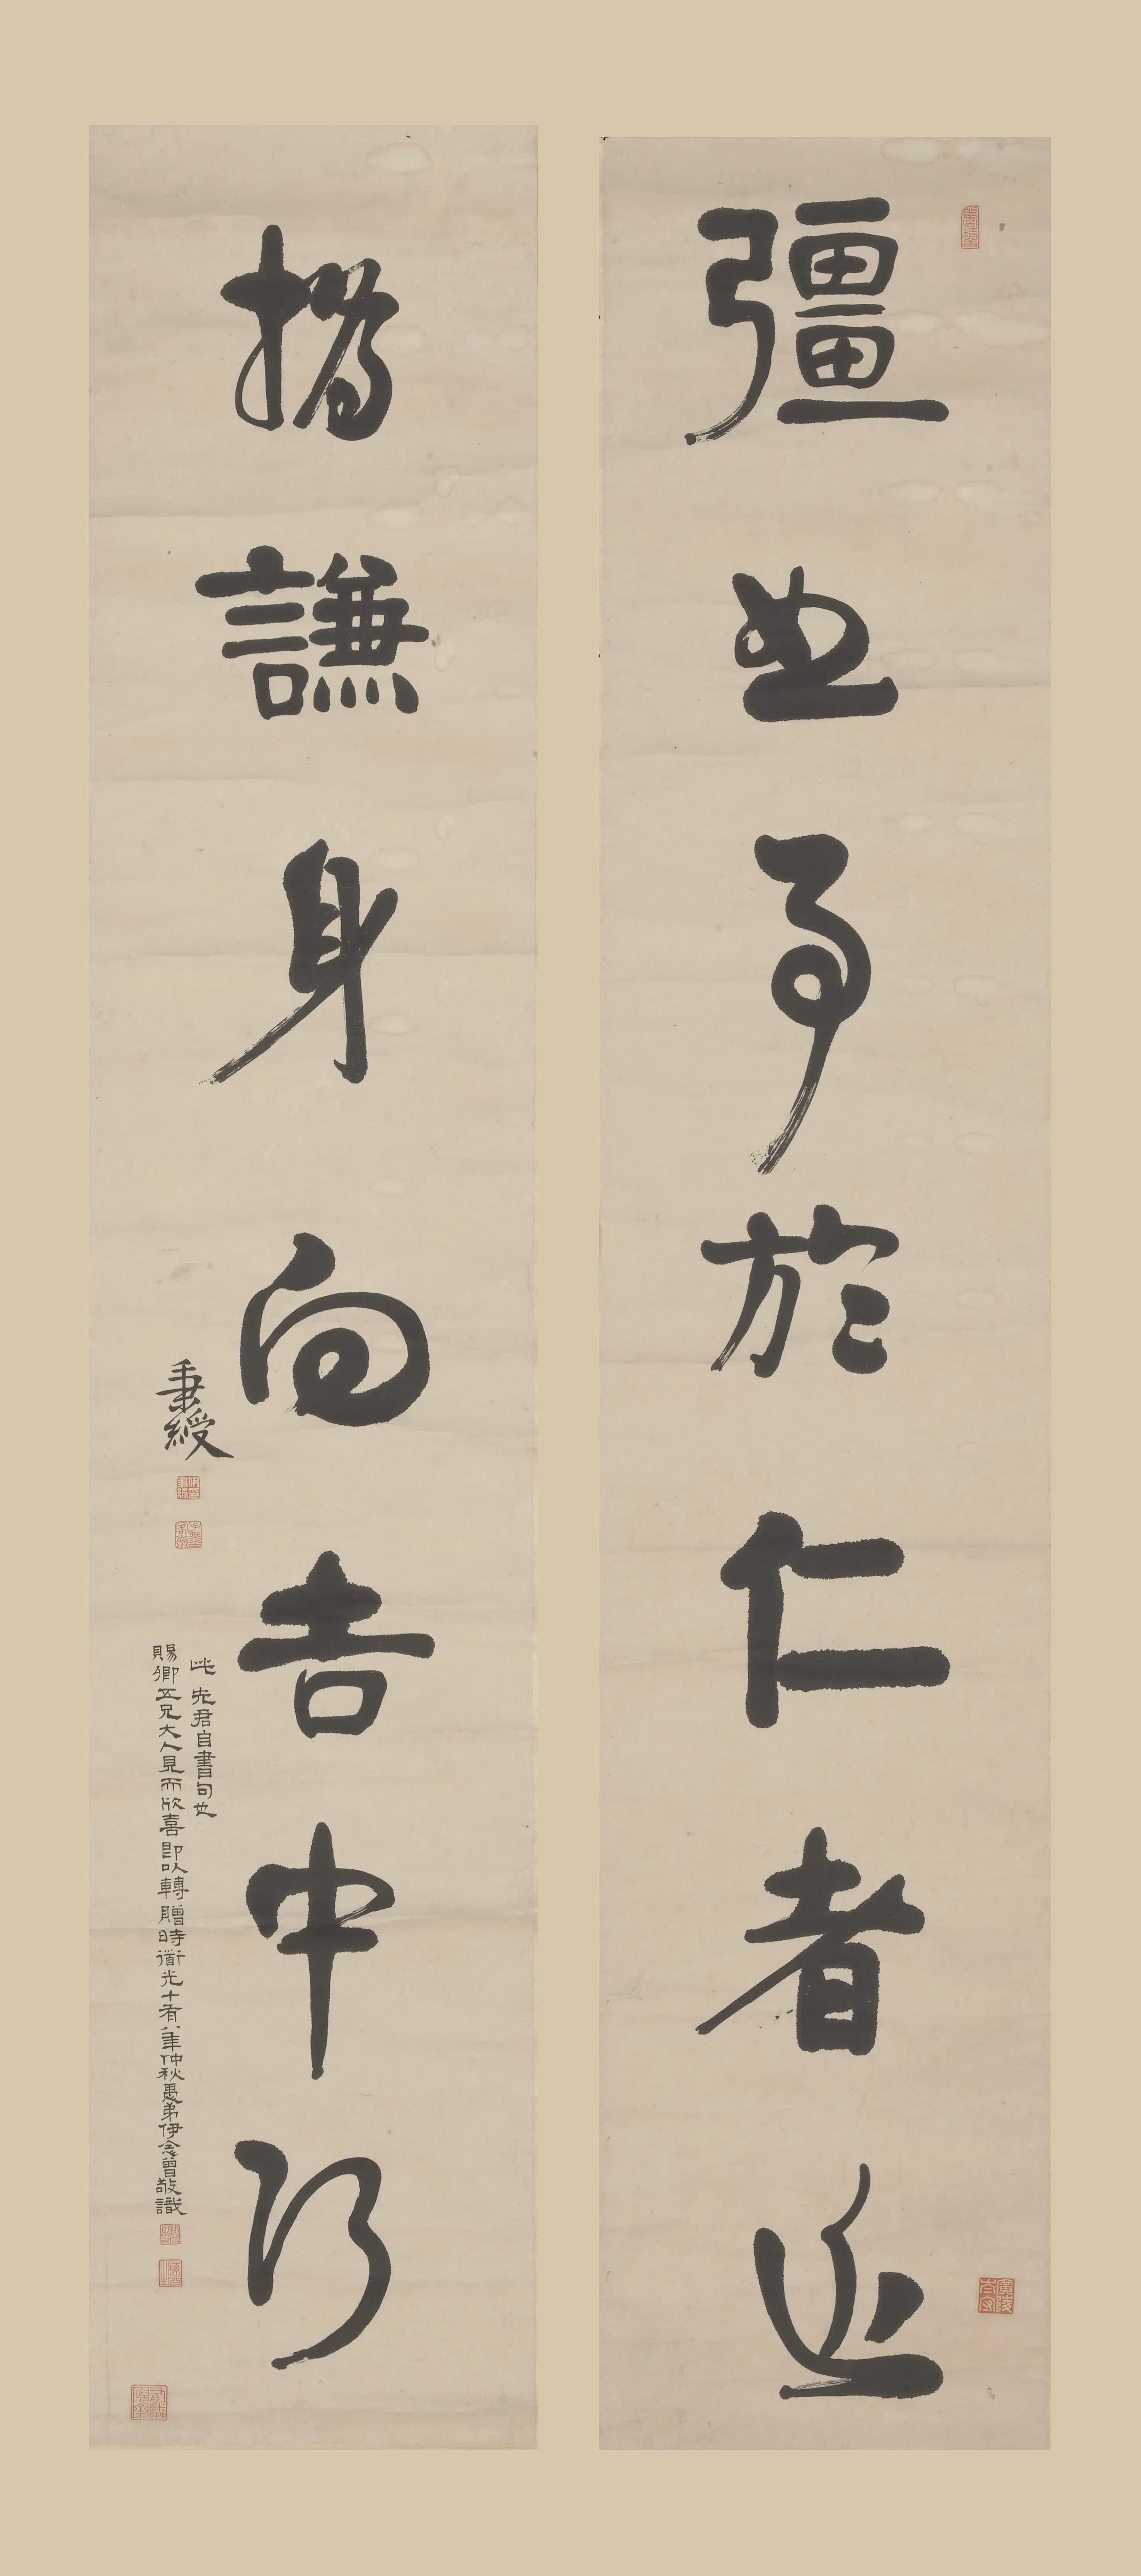 彊恕事於仁者近
撝謙身向吉中行
秉綬
此先君自書句也
賜卿五兄大人見而欣喜即以轉贈時道光十有八年仲秋愚弟伊念曾敬識
廣陵太守